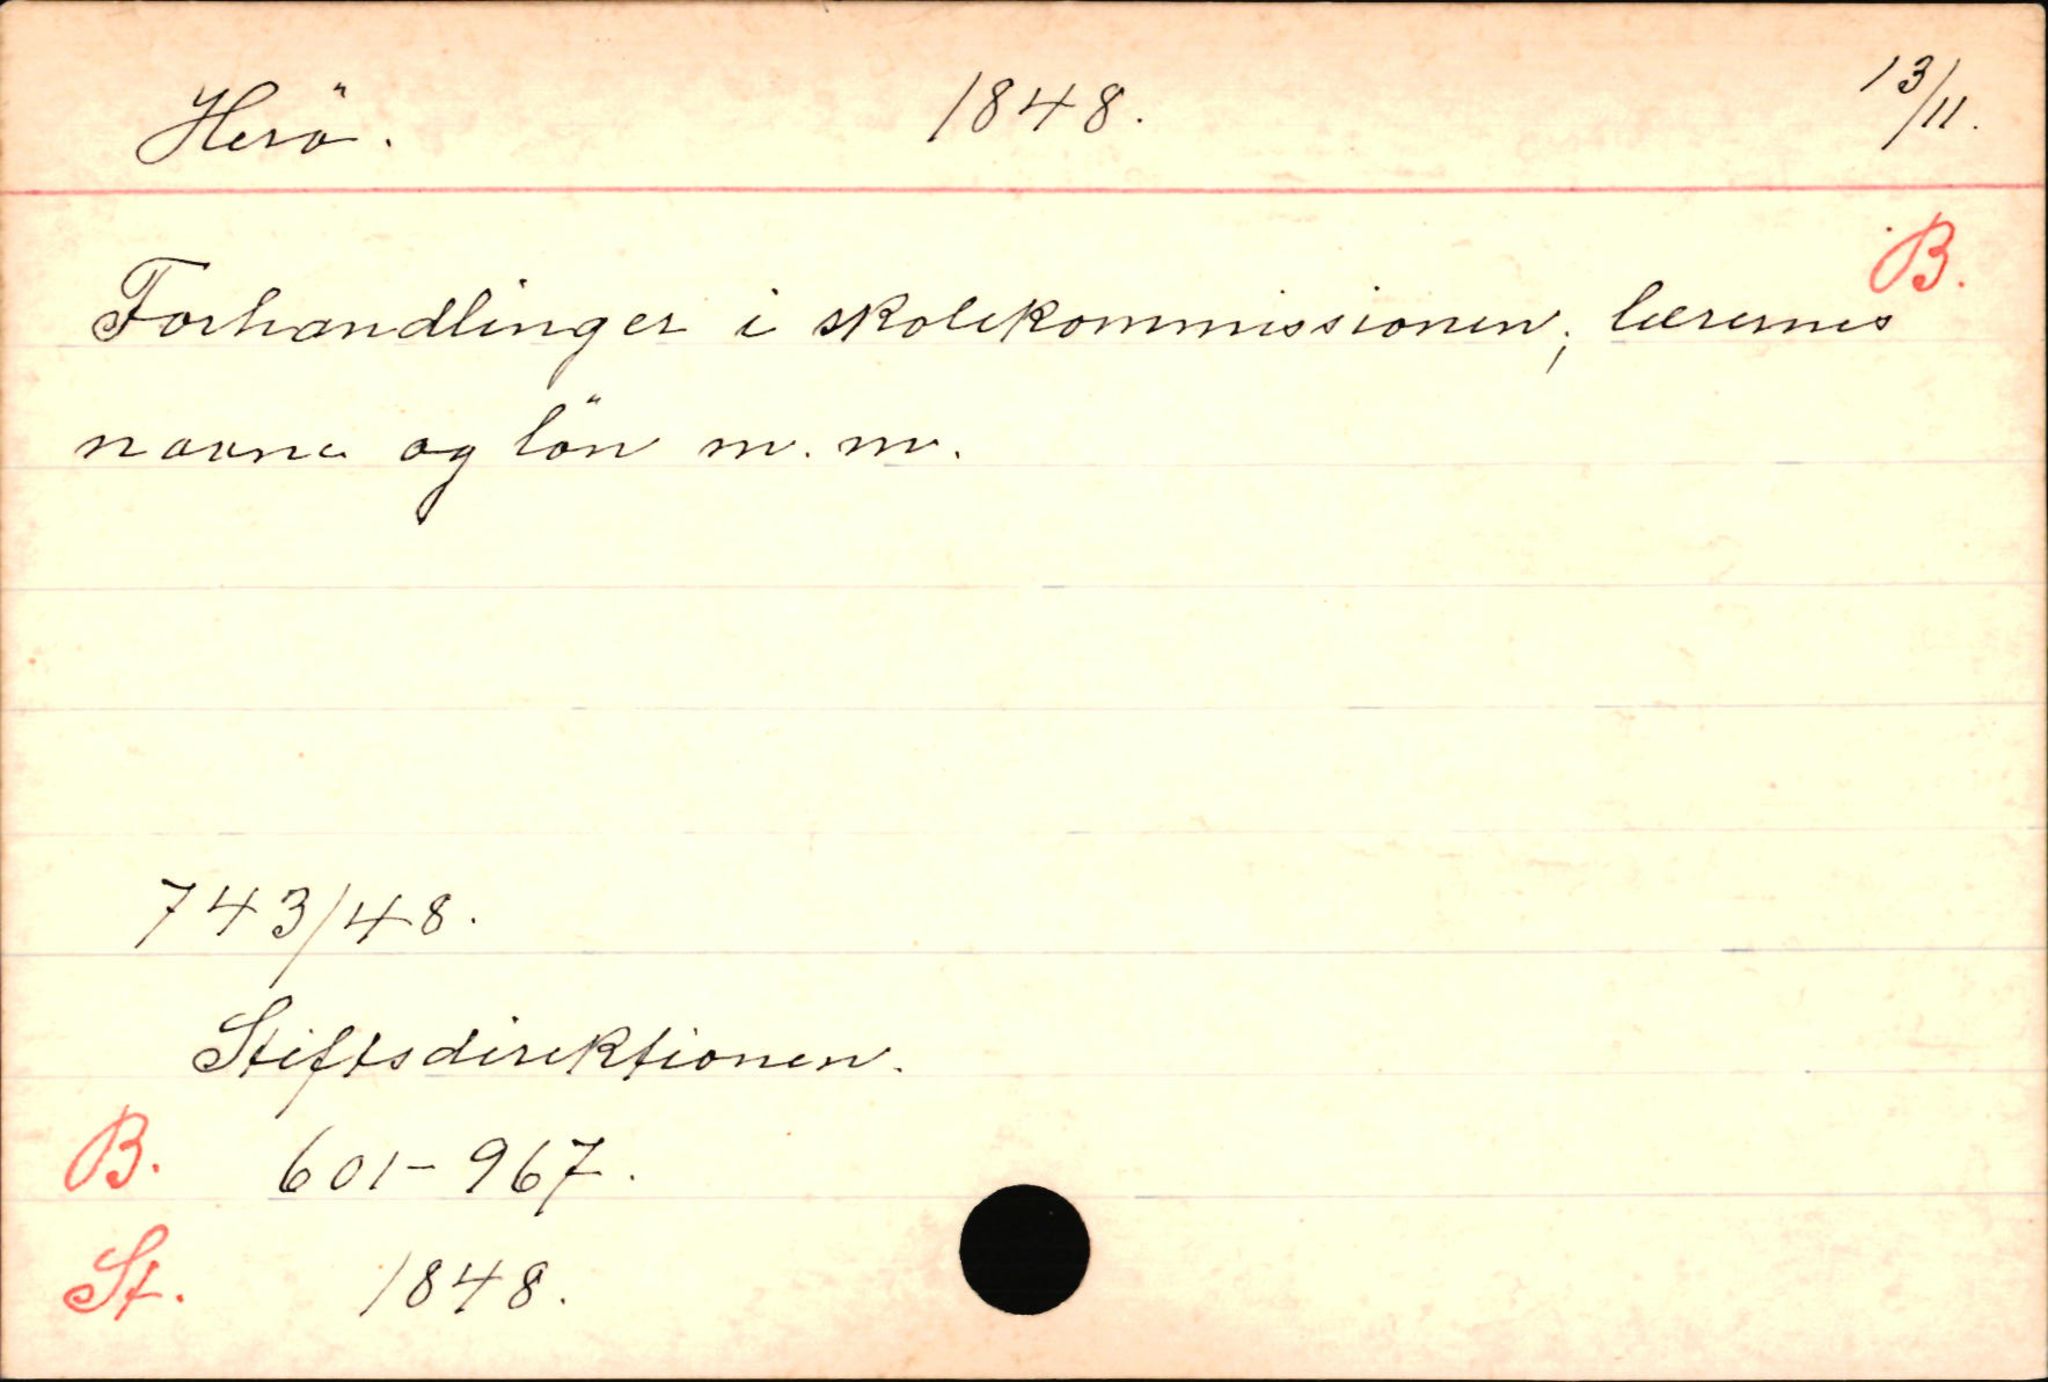 Herö. 1848. 13/11.
B.
Forhandlinger i skolekommissionen; lærernes
navne og lön m. m.
743/48.
Stiftsdirektionen.
B. 601-967.
St. 1848.